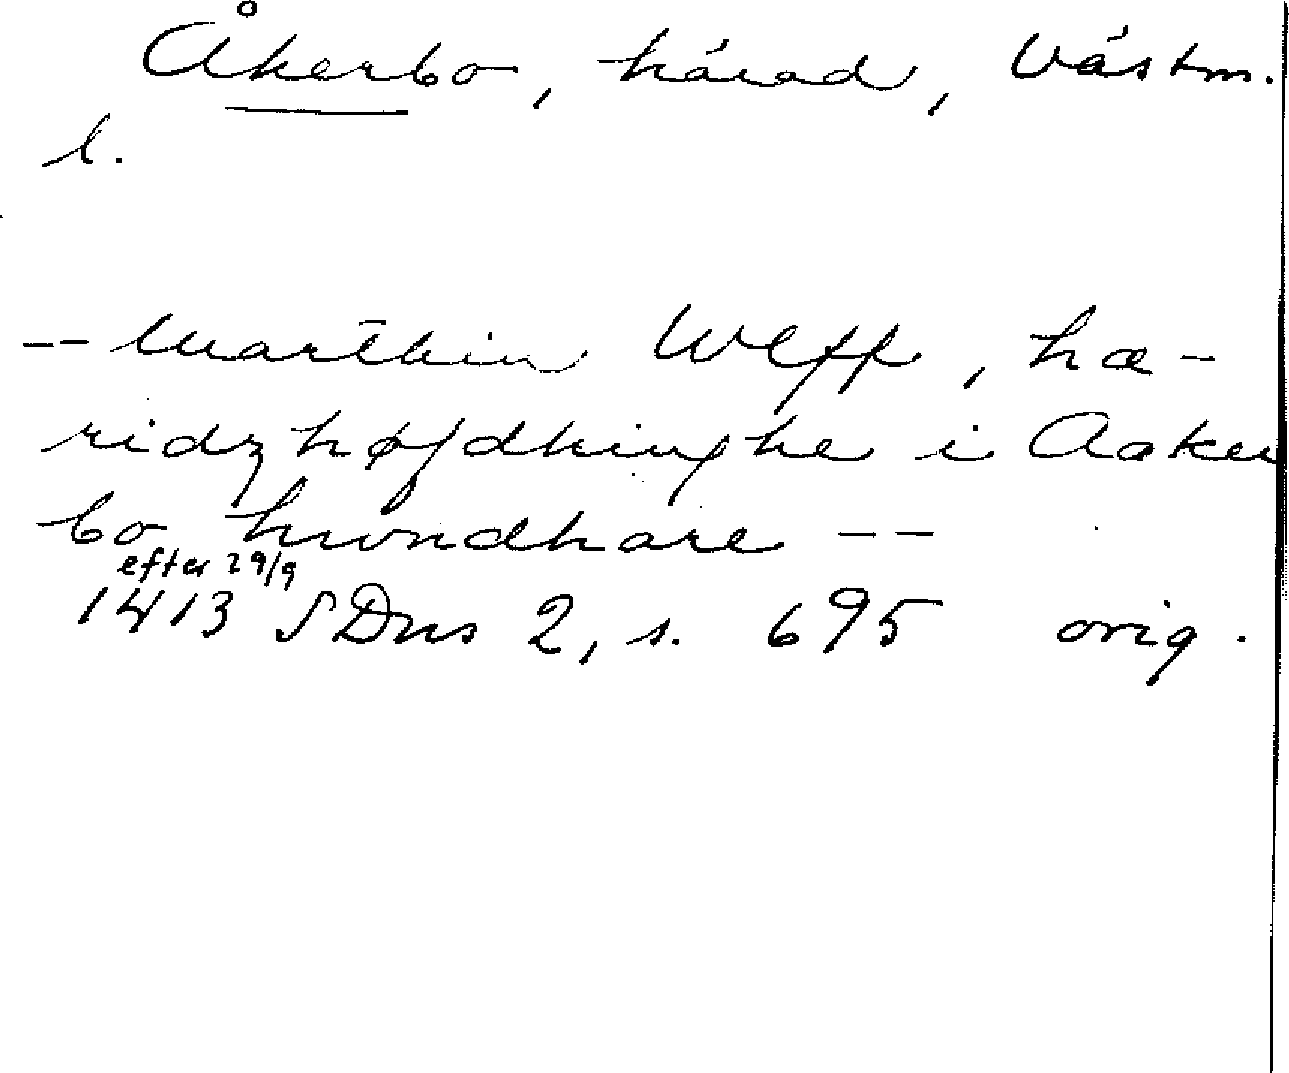 Åkerbo, härad, Västm.
l.
-- Marthin Wlff, hæ-
ridzhøfdhinghe i Aaker
bo hwndhare --
efter 29/9
1413 SDns 2, s. 695 orig.